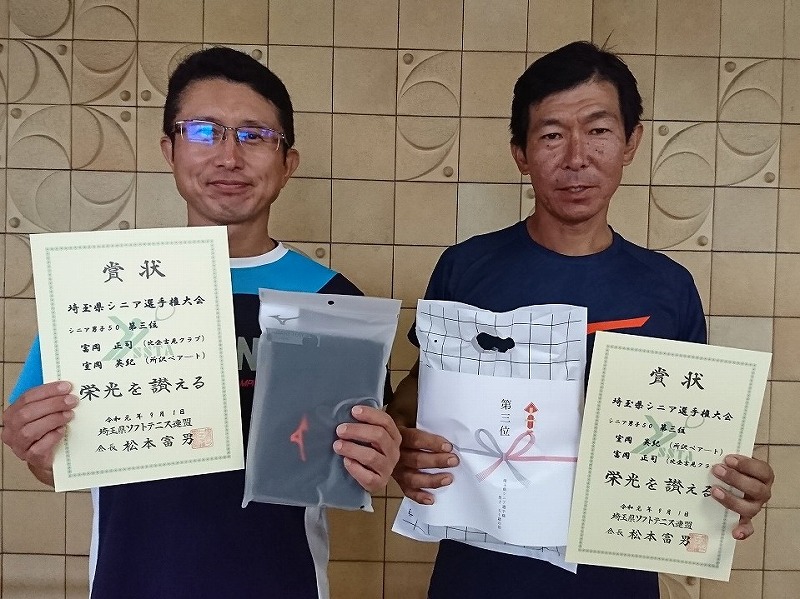 賞状
埼玉県シニア選手権大会
シニア男子50 第三位
富岡 正司 (比企吉見クラブ)
室岡 英紀 (所沢ペアート)
栄光を讃える
令和元年9月1日
埼玉県ソフトテニス連盟
会長 松本富男
第三位
賞状
埼玉県シニア選手権大会
シニア男子50 第三位
室岡 英紀 (所沢ペアート)
富岡 正司 (比企吉見クラブ
栄光を讃える
令和元年9月1日
埼玉県ソフトテニス連盟
会長 松本富男